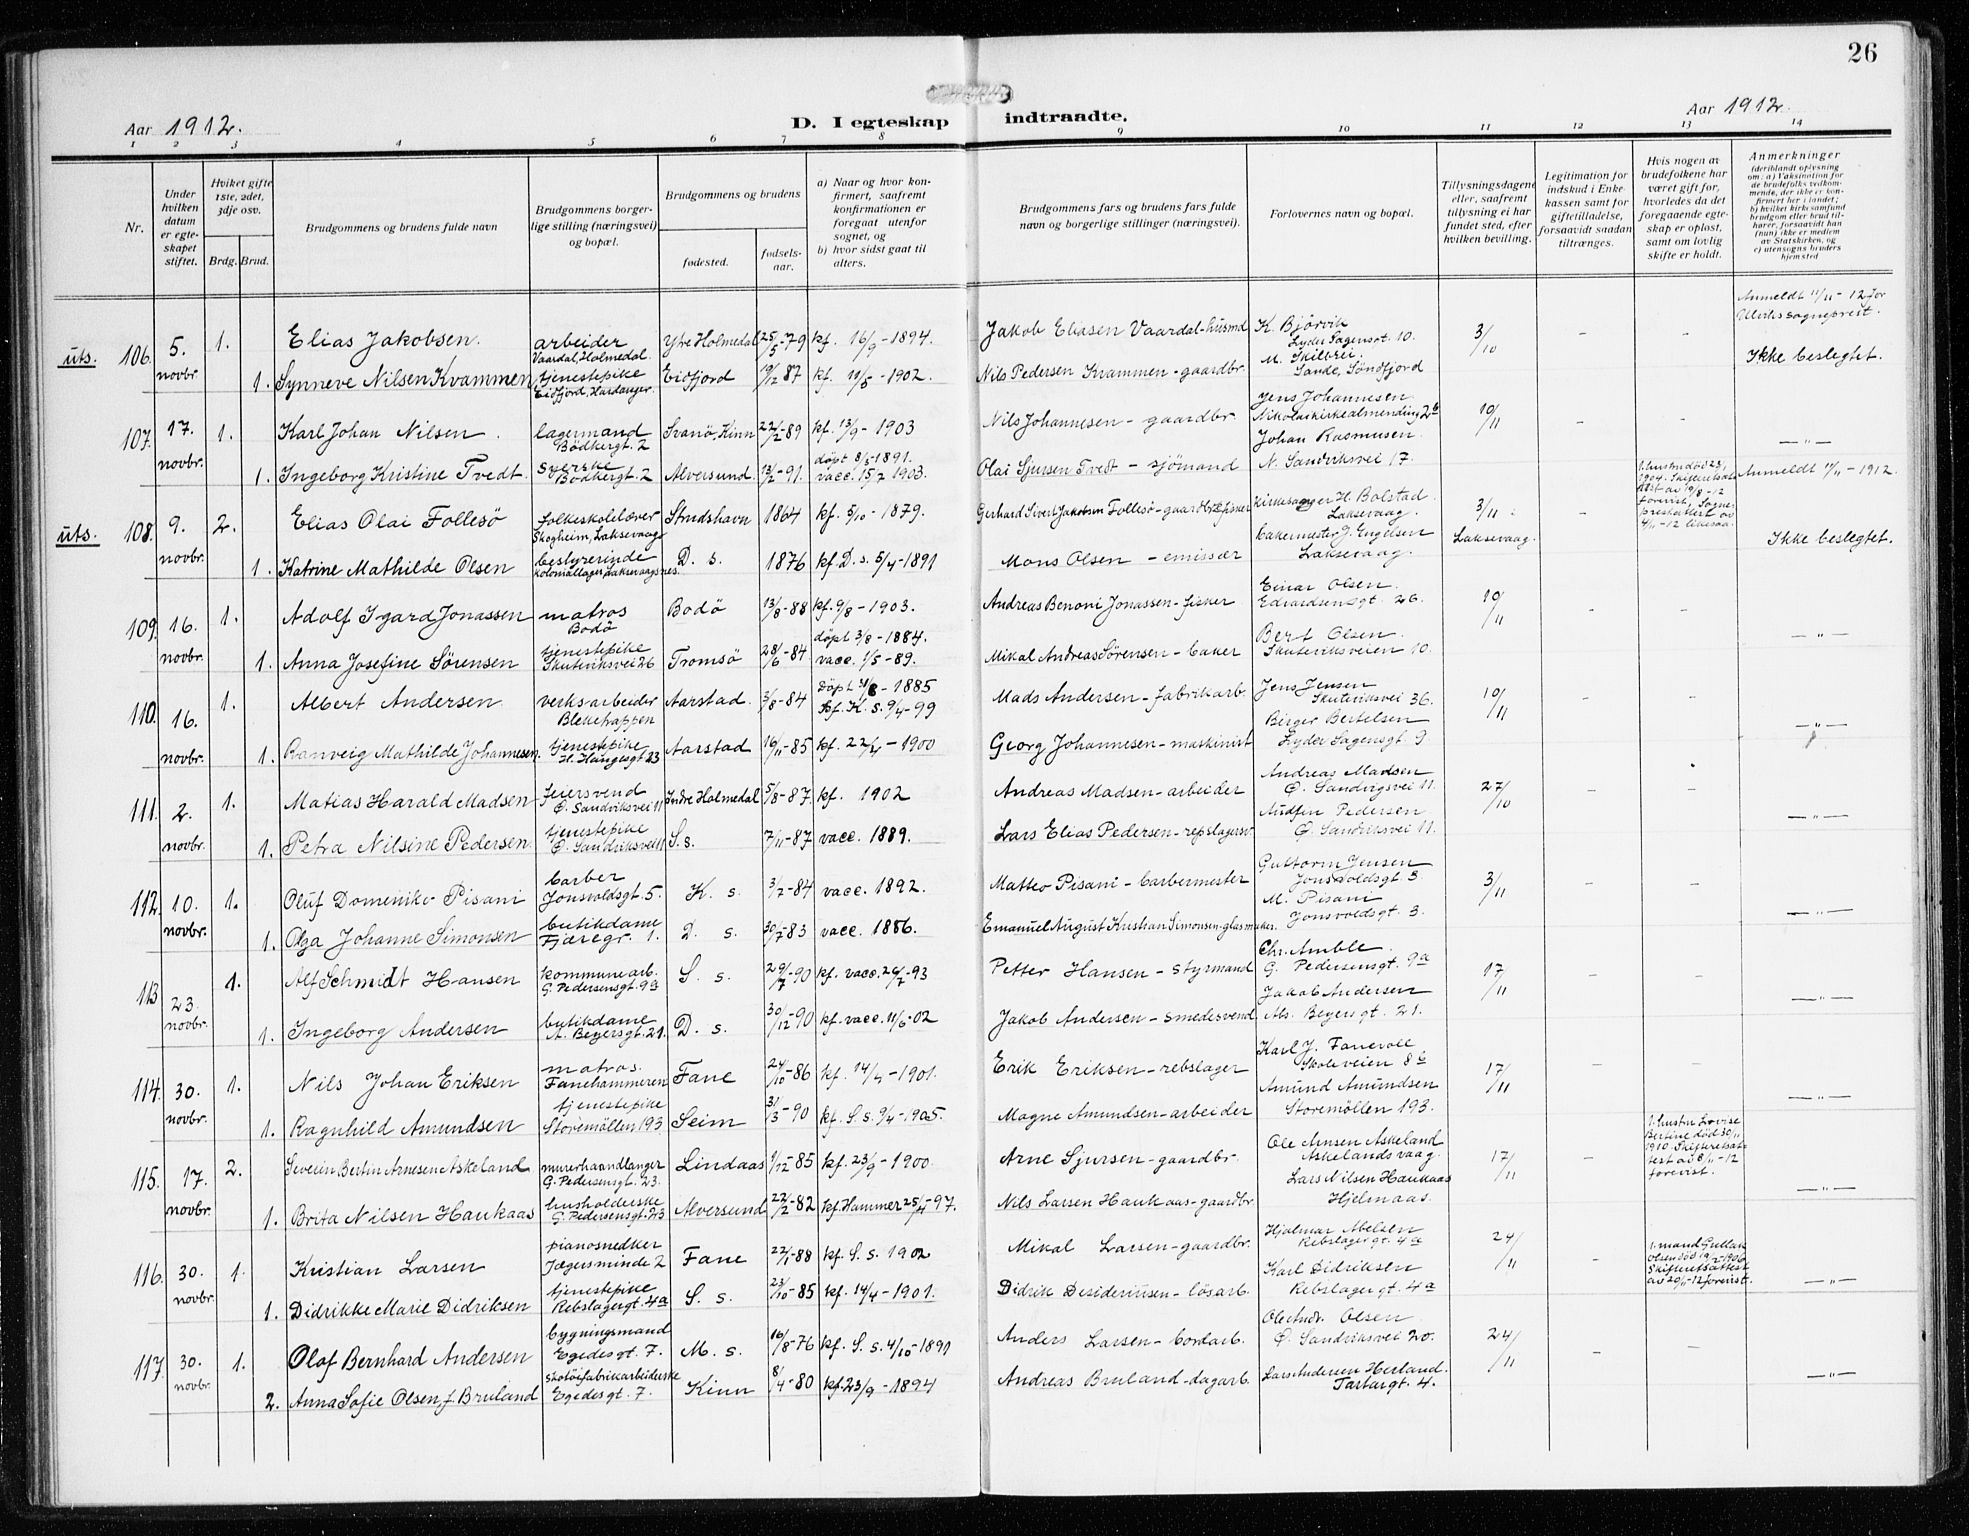 26
Aar 1912.
D. I egteskap indtraadte.
Aar 1912.
1 2 3 4 5 6 7 8 9 10 11 12 13 14
Nr.
Under hvilken datum er egteskapet stiftet.
Hviket gifte 1ste, 2det, 3dje osv.
Brdg. Brud.
Brudgommens og brudens fulde navn
Brudgommens borgerlige stilling (næringsvei) og bopæl.
Brudgommens og brudens
fødested.
fødselsaar.
a) Naar og hvor konfirmert, saafremt konfirmationen er foregaat utenfor sognet, og
b) hvor sidst gaat til alters.
Brudgommens fars og brudens fars fulde navn og borgerlige stillinger (næringsvei).
Forlovernes navn og bopæl.
Tillysningsdagene eller, saafremt tillysning ei har fundet sted, efter hvilken bevilling.
Legitimation for indskud i Enkekassen samt for giftetilladelse, forsaavidt saadan tiltrænges.
Hvis nogen av brudefolkene har været gift før, hvorledes da det foregaaende egteskap er opløst, samt om lovlig skifte er holdt.
Anmerkninger
(deriblandt oplysning om: a) Vaksination for de brudefolks vedkommende, der ikke er konfirmert her i landet; b) hvilket kirkesamfund brudgom eller brud tilhører, forsaavidt han (hun) ikke er medlem av Statskirken, og c) utensogns bruders hjemsted
uts. 106. 5. novbr. 1. Elias Jakobsen. arbeider Vaardal, Holmedal. Ytre Holmedal 25/5-79 kf. 16/9-1894. Jakob Eliasen Vaardal-husmd K. Bjørvik Lyder Sagensgt. 10. 3/10 - - Anmeldt 11/11-12 for sogneprest.
1. Synneve Nilsen Kvammen tjenestepike Eidfjord, Hardanger. Eidfjord 19/12 87 kf. 11/5-1902. Nils Pedersen Kvammen-gaardbr. M. Skilbrei. Sande, Søndfjord Ikke beslegtet.
107. 17. novbr. 1. Karl Johan Nilsen. lagermand Bödkergt. 2 Svanø, Kinn 22/2-89 kf. 13/9-1903 Nils Johannesen-gaardbr. Jens Johannesen. Nikolaikirkealmending 2b 10/11 - -
1. Ingeborg Kristine Tvedt. syerske Bödkergt. 2 Alversund. 13/2-91. døpt 8/3-1891. vacc. 15/7 1903. Olai Sjursen Tvedt-sjømand Johan Rasmusen. N. Sandviksvei 17. —"—
uts. 108. 9. novbr. 2. Elias Olai Follesö folkeskolelærer Skogheim, Laksevaag Strudshavn 1864 kf. 5/10-1879. Gerhard Sivert Jakobsen Follesö-gaardbr & fisker kirkesanger H. Bolstad. Laksevaag. 3/11 Laksevaag. - 1. hustru død 23/1 1904. Skifteretsattest av 19/8-12 forevist. Anmeldt 11/11-1912.
1. Katrine Mathilde Olsen bestyrerinde koloniallager, Laksevaagsnes. D. s. 1876 kf. D. s. 5/4-1891 Mons Olsen-emissær bakermester J. Engelsen Laksevaag. Ikke beslegtet.
109. 16. novbr. 1. Adolf Sgard Jonassen matros Bodö Bodö 13/8-88 kf. 9/8-1903. Andreas Benoni Jonassen-fisker Einar Olsen. Edvardsensgt. 26. 10/11 - -
1. Anna Josefine Sörensen tjenestepike Skuteviksvei 26 Tromsö 28/6-84 døpt 3/8-1884. vacc. 1/5-89. Mikal Andreas Sørensen-baker Bert Olsen. Skuteviksveien 10. —"—
110. 16. novbr. 1. Albert Andersen verksarbeider Blekehappen Aarstad. 3/8-84 Döpt 31/8-1885 Kf. K. s. 9/4-99 Mads Andersen-fabrikarb. Jens Jensen Skuteviksvei 36. 10/11 - -
1. Ranveig Mathilde Johannesen. tjenestepike H. Haugesgt 23 Aarstad 16/11-85 kf. 22/4-1900 Georg Johannesen-maskinist Birger Bertelsen Lyder Sagensgt. 9. —"—
111. 2. novbr. 1. Matias Harald Madsen feiersvend Ø. Sandviksvei 11 Indre Holmedal 5/8-87. kf. 1902 Andreas Madsen-arbeider Andreas Madsen Ø. Sandvigsvei 11. 27/10 - -
1. Petra Nilsine Pedersen. tjenestepike Ø. Sandviksvei 11 S. s. 7/11-87 vacc. 1889. Lars Elias Pedersen-repslagersv. Audfin Pedersen Ø. Sandviksvei 11.
112. 10. novbr. 1. Oluf Domeniko Pisani barber Jonsvoldsgt. 5. K. s. 3/7-84 vacc. 1892. Matteo Pisani-barbermester Guttorm Jensen Jonsvoldsgt 3 3/11 - -
1. Olga Johanne Simonsen butikdame Fjæregr. 1. D. s. 30/7-83 vacc. 1886. Emanuel August Kristian Simonsen-glasmaker. M. Pisani Jonsvoldsgt. 3. —"—
113 23. novbr. 1. Alf Schmidt Hansen kommunearb. G. Pedersensgt. 9a S. s. 29/7-90 kf. vacc. 26/7-93 Petter Hansen-styrmand Chr. Amble. G. Pedersensgt. 9a 17/11 - -
1. Ingeborg Andersen butikdame A. Beyersgt. 21. D. s. 30/12-90 kf. vacc. 11/6-02 Jakob Andersen-smedesvend Jakob Andersen Abs. Beyersgt. 21. —"—
114. 30. novbr. 1. Nils Johan Eriksen matros. Fanehammeren Fane 24/10-86 kf. 14/4-1901. Erik Eriksen-rebslager Karl J. Fanevoll Skoleveien 8b 17/11 - -
1. Ragnhild Amundsen tjenestepike Storemöllen 193 Seim 31/3-90 kf. S. s. 9/4-1905. Magne Amundsen-arbeider Amund Amundsen Storemöllen 193. —"—
115. 17. novbr. 2. Severin Bertin Arnesen Askeland murerhaandlanger G. Pedersensgt. 23. Lindaas 9/12-85 kf. 23/9-1900. Arne Sjursen-gaardbr. Ole Arnsen Askeland Askelandsvaag. 17/11 - 1. hustru Lovise Bertine død 30/11 1910. Skifteretsattest av 8/11-12 forevist.
1. Brita Nilsen Haukaas husholderske G. Pedersensgt. 23 Alversund 22/2-82 kf. Hammer 25/4-97. Nils Larsen Haukaas-gaardbr. Lars Nilsen Haukaas Hjelmaas. —"—
116. 30. novbr. 1. Kristian Larsen pianosnedker Jægersminde 2 Fane 22/1-88 kf. S. s. 1902 Mikal Larsen-gaardbr. Hjalmar Abelsen Rebslagergt. 4a 24/11 -
1. Didrikke Marie Didriksen tjenestepike Rebslagergt. 4a S. s. 23/10-85 kf. 14/4-1901. Didrik Desideriusen-løsarb. Karl Didriksen Rebslagergt. 4a 1. mand Gullak Olsen død 19/2-1906. Skifteretsattest av 20/11-12 forevist. —"—
117 30. novbr. 1. Olaf Bernhard Andersen bygningsmand Egedesgt. 7. M. s. 16/8-76 kf. S. s. 4/10-1891 Anders Larsen-bordarb. Ole Andr. Olsen Ø. Sandviksvei 20. 24/11 - -
2. Anna Sofie Olsen f. Bruland skotöifabrikarbeiderske Egedesgt. 7. Kinn 8/4-80 kf. 23/9-1894 Andreas Bruland-dagarb. Lars Andersen Herland. Tartargt. 4. —"—